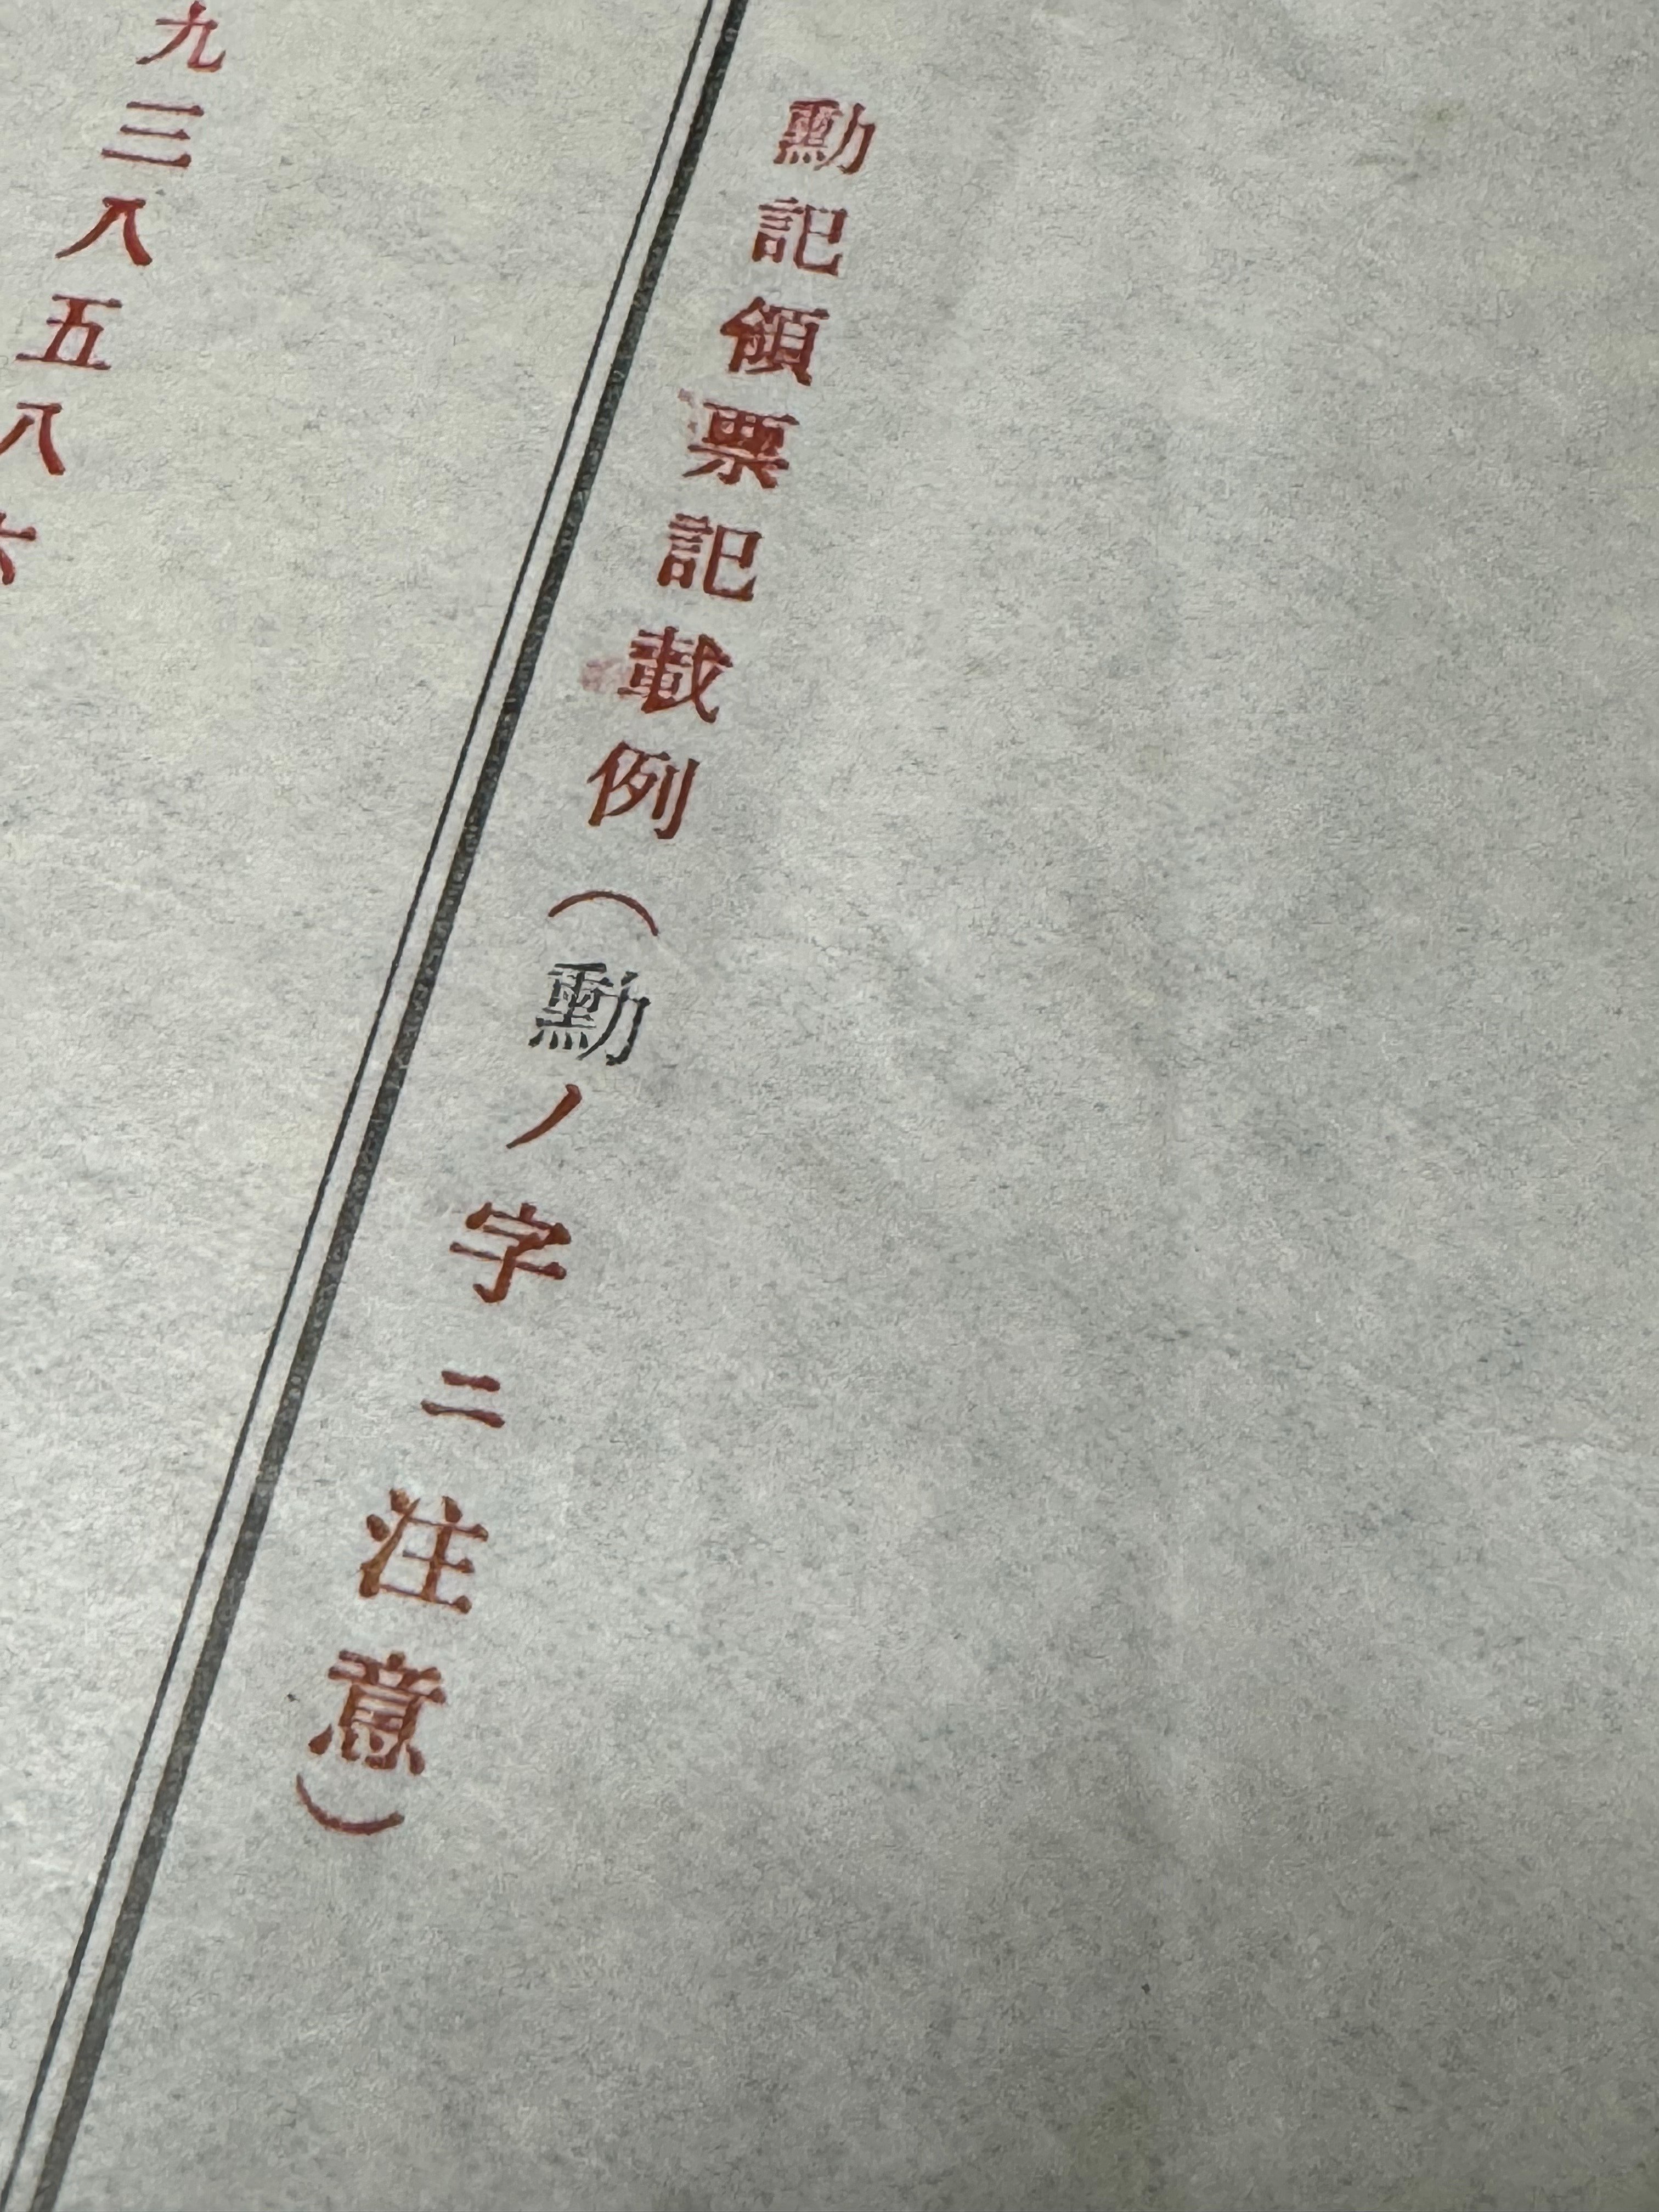 勳記領票記載例（勳ノ字ニ注意）
九三八五八六